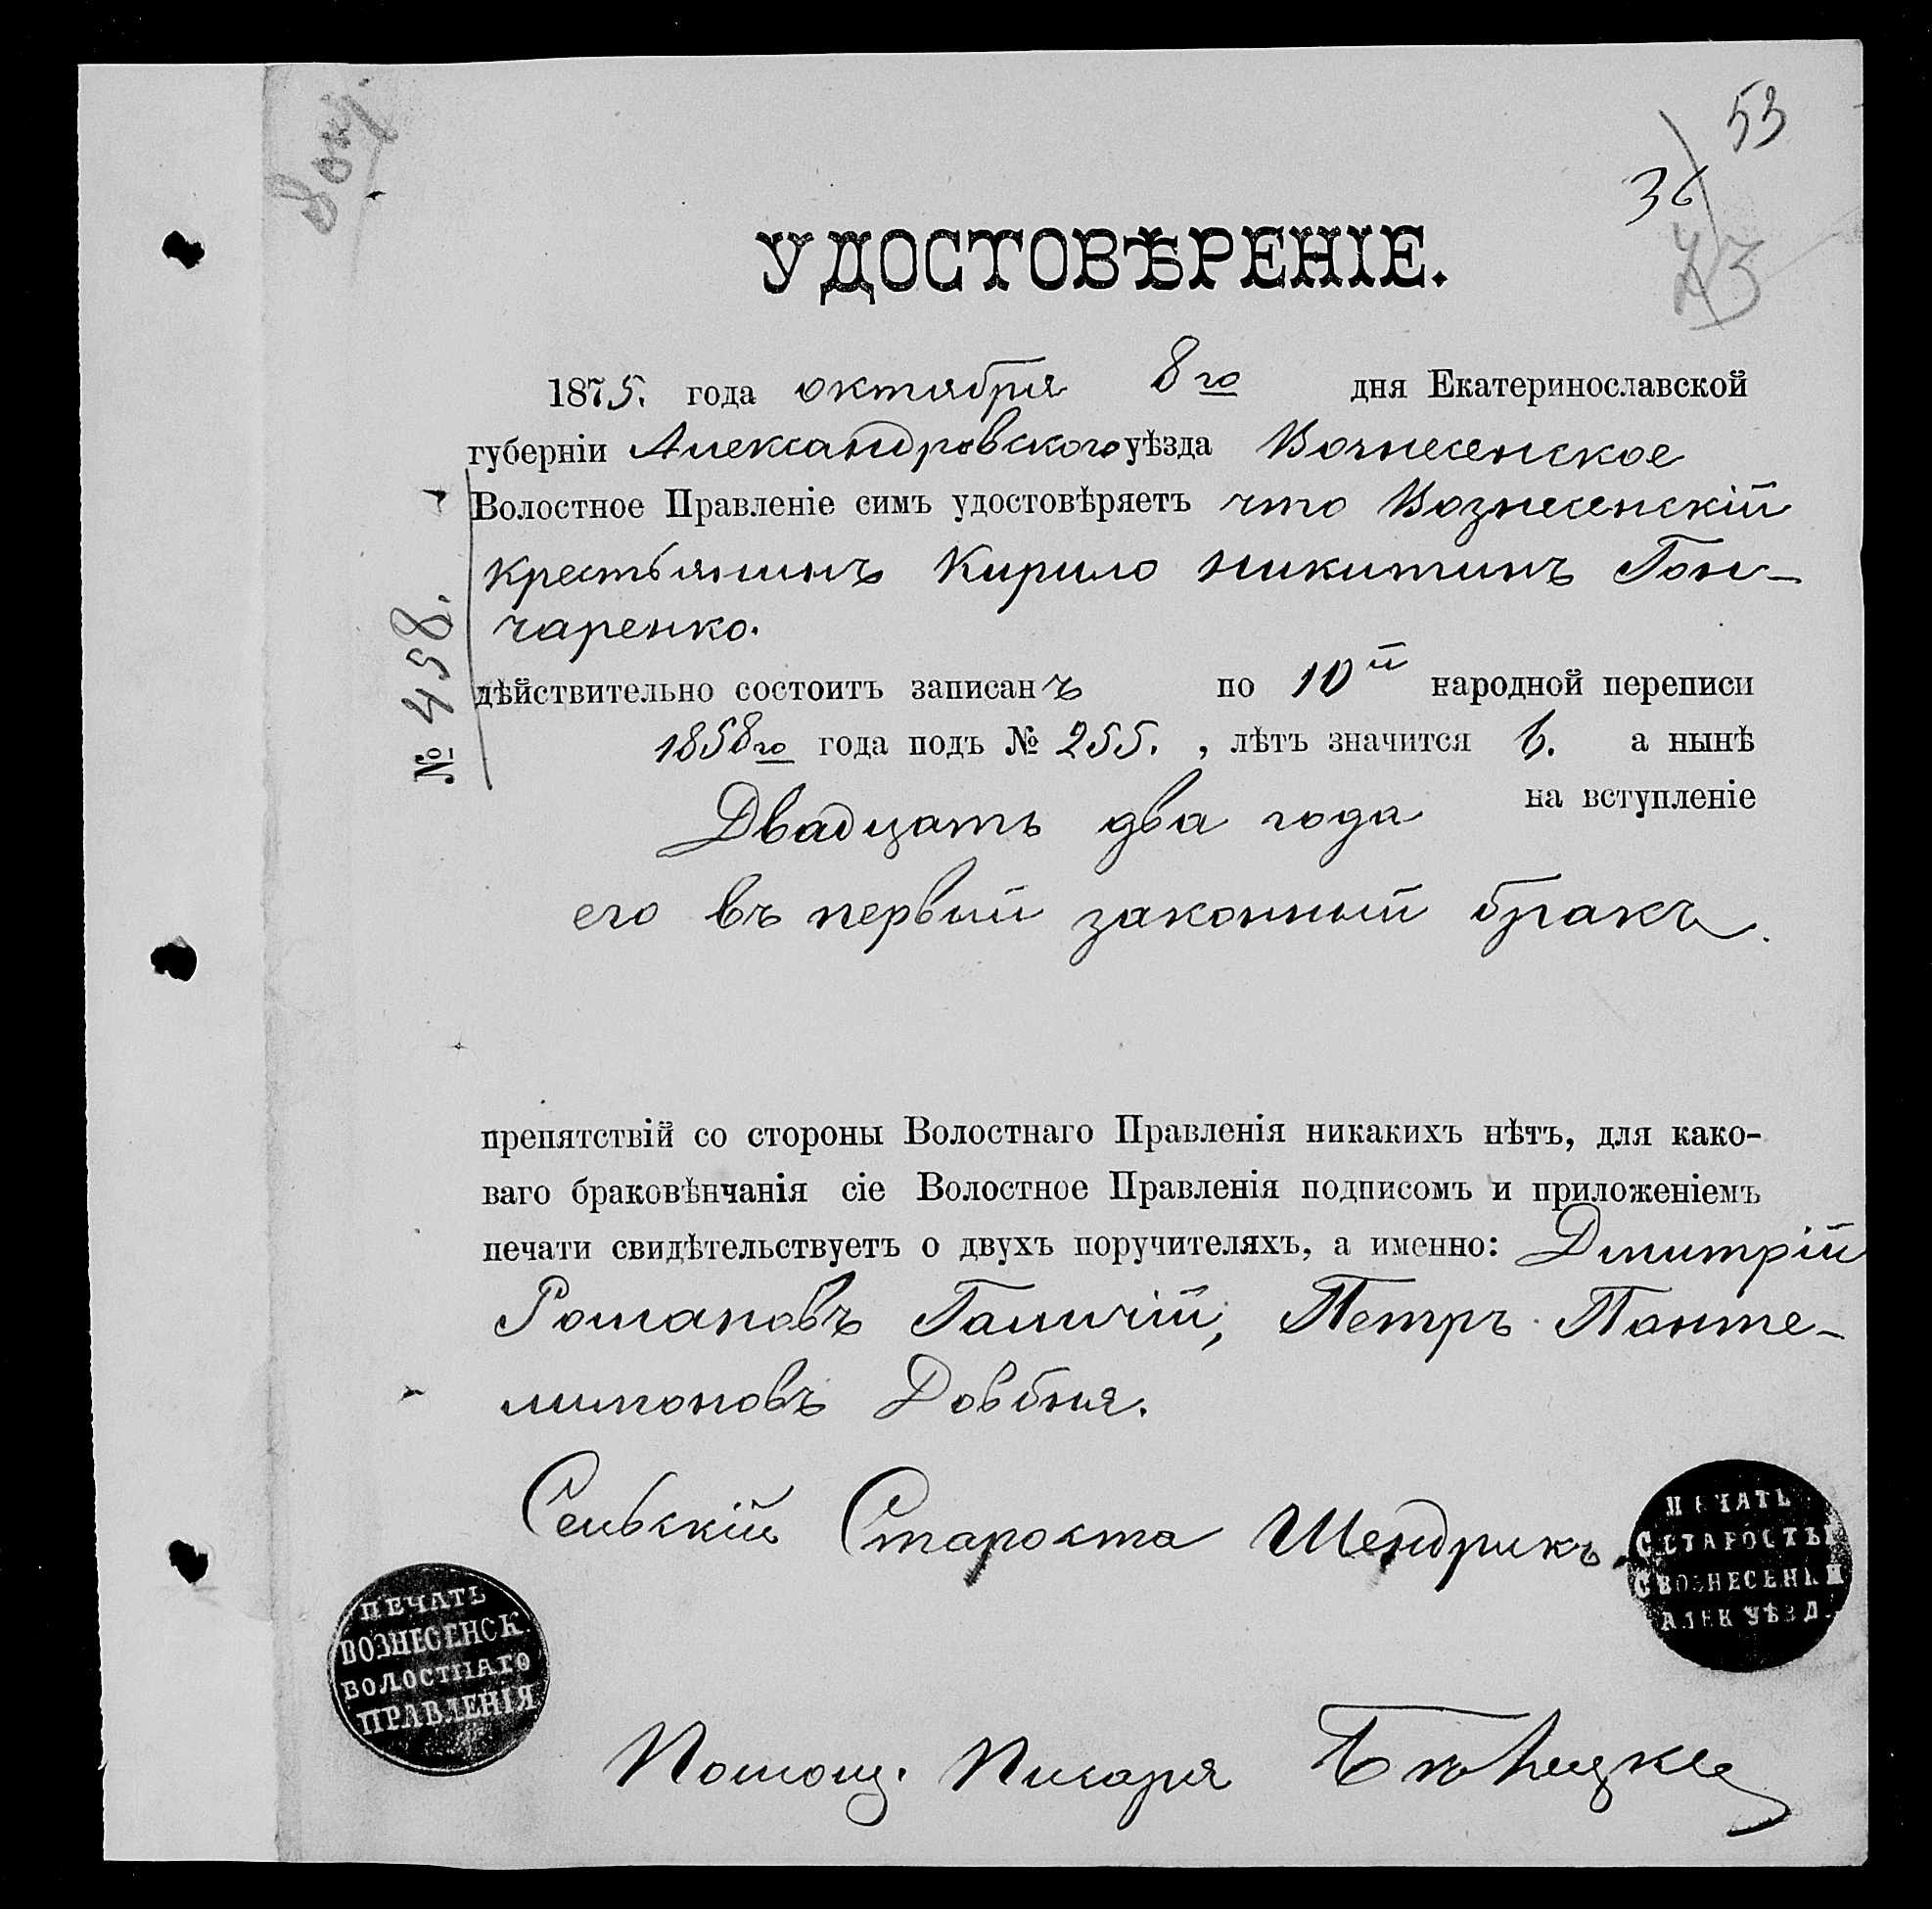 53
36
43
УДОСТОВѢРЕНІЕ.
1875. года октября 8го дня Екатеринославской
губерніи Александровского уѣзда Вознесенское
Волостное Правленіе симъ удостовѣряетъ что Вознесенскій
крестьянинъ Кирило Никитинъ Гон-
чаренко.
№ 498.
дѣйствительно состоитъ записанъ по 10й народной переписи
1858го года подъ № 255. , лѣтъ значится 6. а нынѣ
Двадцать два года на вступленіе
его въ первый законный бракъ.
препятствій со стороны Волостнаго Правленія никакихъ нѣтъ, для како-
ваго браковѣнчанія сіе Волостное Правленія подписомъ и приложеніемъ
печати свидѣтельствуетъ о двухъ поручителяхъ, а именно: Дмитрій
Романовъ Галичій, Петръ Панте-
лимоновъ Довбня.
Сельскій Староста Шендрикъ.
ПЕЧАТЬ
С. СТАРОСТЫ
С ВОЗНЕСЕНКИ
АЛЕК УѢЗД.
ПЕЧАТЬ
ВОЗНЕСЕНСК
ВОЛОСТНАГО
ПРАВЛЕНІЯ
Помощ. Писаря